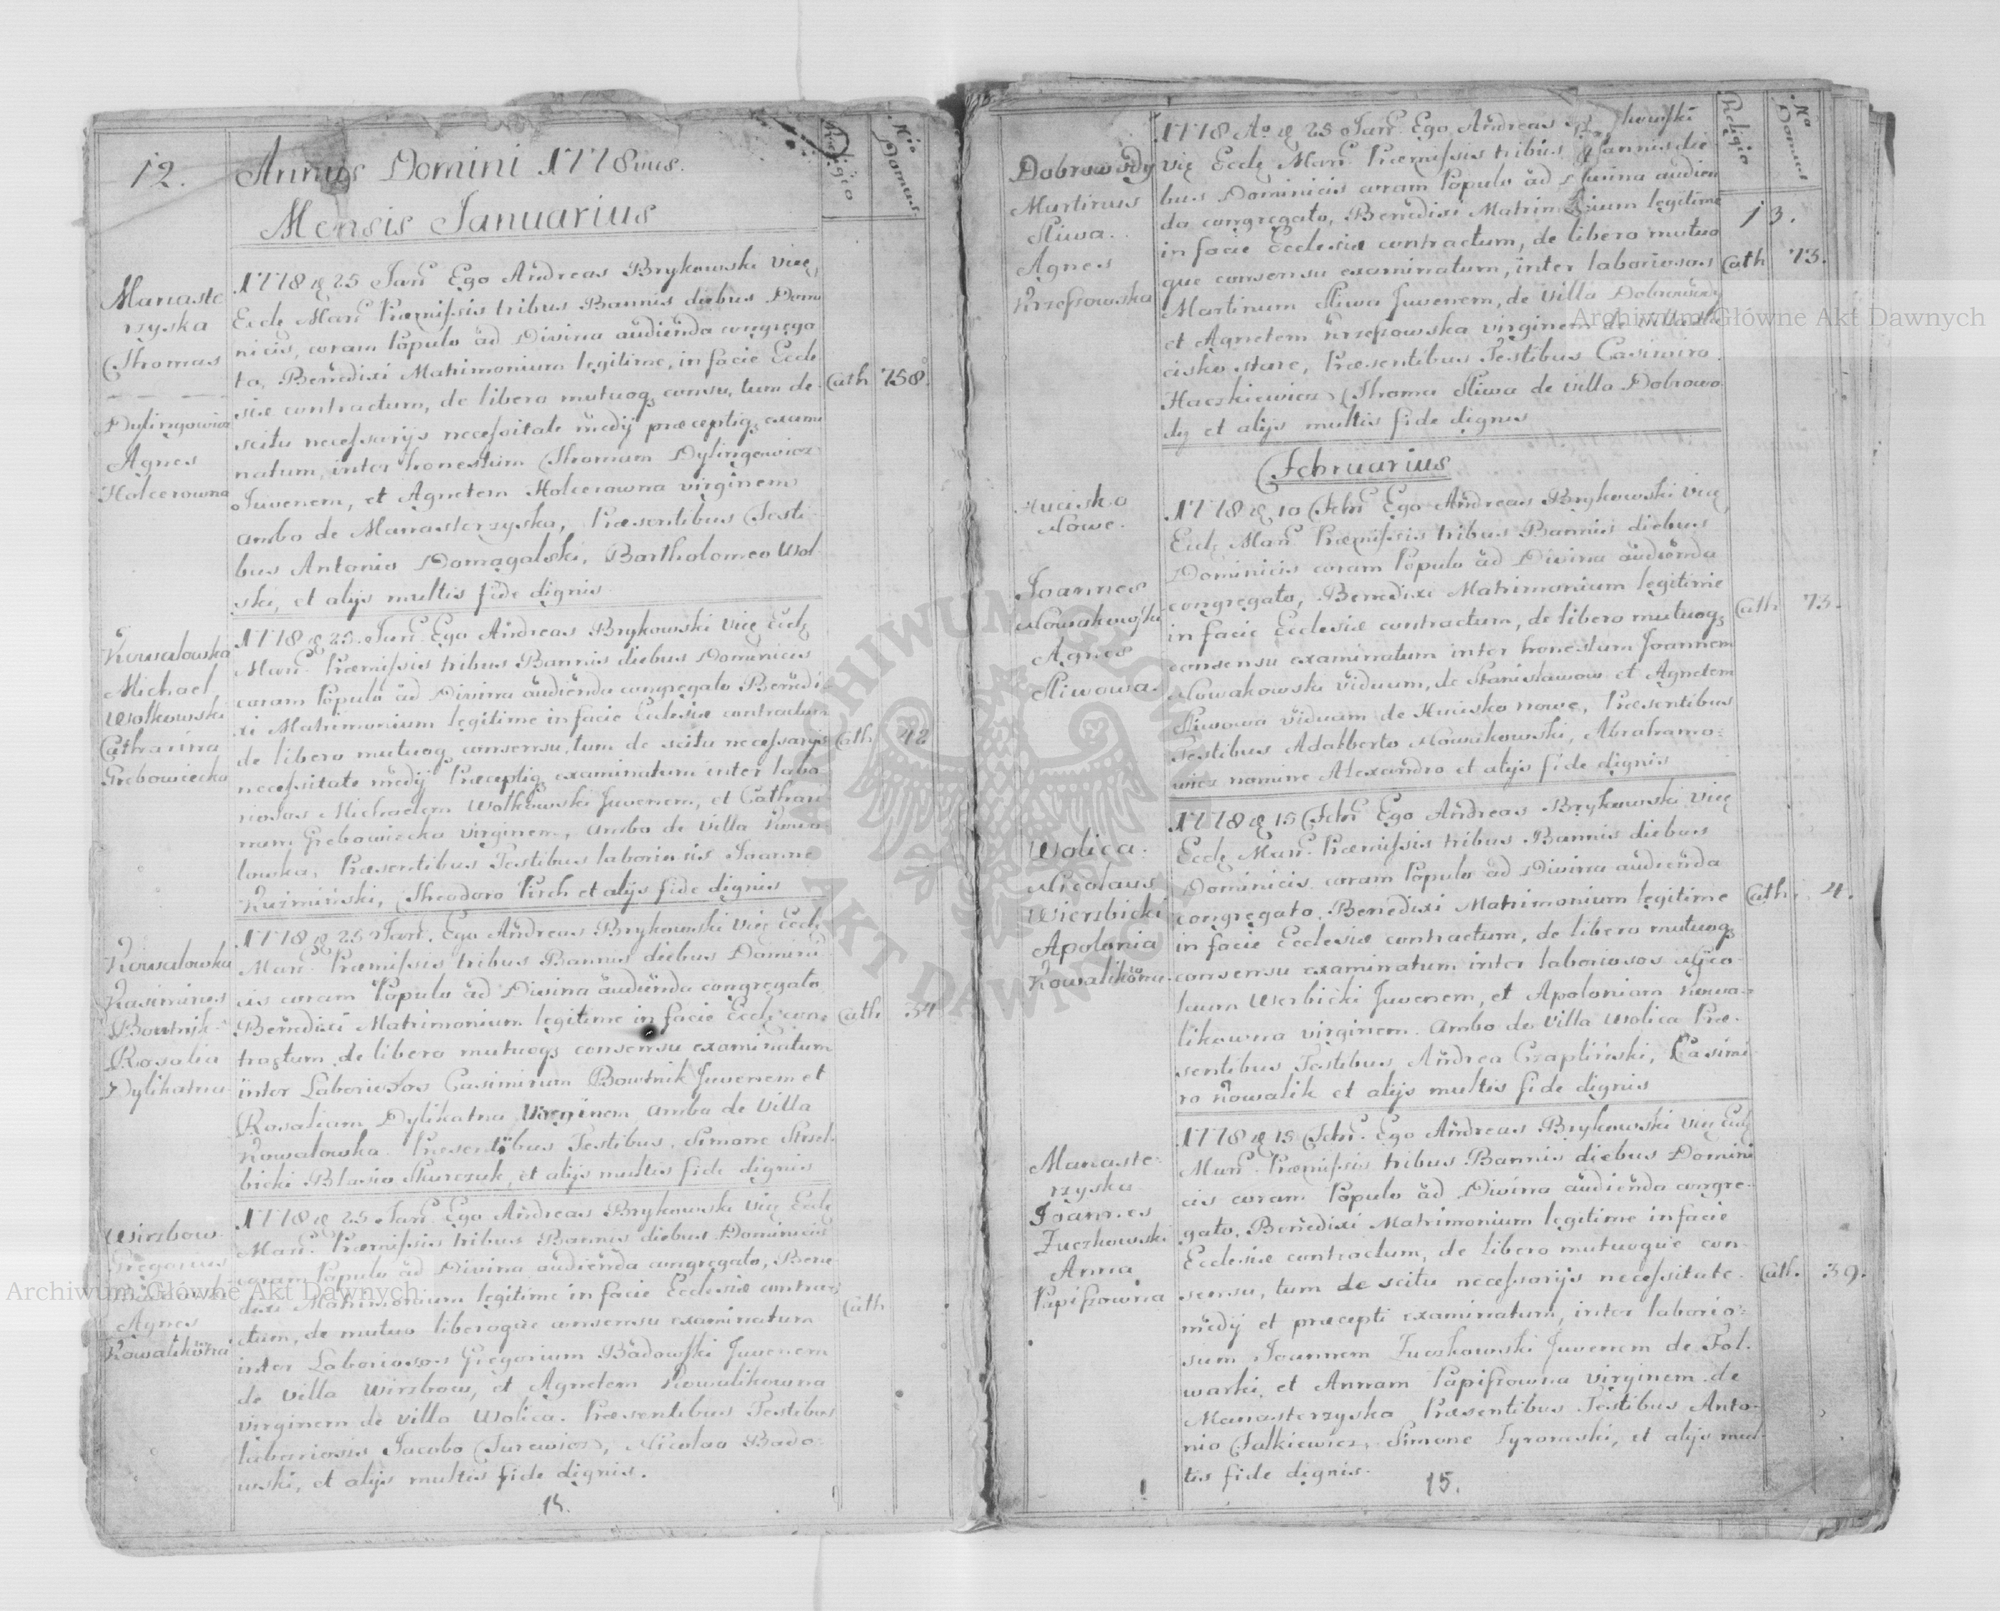 12.
Annus Domini 1778vus.
Religio
Nro Domus.
Mensis Januarius
Manaste
rzyska
Thomas
Dylingowicz
Agnes
Holcerowna
1778 d 25 Jan. Ego Andreas Brykowski Vice
Eccle Man. Præmissis tribus Bannis diebus Domi
nicis, coram Populo ad Divina audienda congrega
to, Benedixi Matrimonium legitime, in facie Eccle
siæ contractum, de libero mutuoq consu, tum de
scitu necessarijs necessitate medij præceptiq exami
natum, inter honestum Thomam Dylingowicz
Juvenem, et Agnetem Holcerowna virginem
ambo de Manasterzyska, Præsentibus Testi
bus Antonio Domagalski, Bartholomeo Wol
ski, et alijs multis fide dignis
Cath 758.
Kowalowka
Michael
Wolkowski
Catharina
Grebowiecka
1778 d 25. Jan. Ego Andreas Brykowski Vice Eccle
Man. Præmissis tribus Bannis diebus Dominicis
coram Populo ad Divina audienda congregato Benedi
xi Matrimonium legitime in facie Ecclesiæ contractum
de libero mutuoq consensu, tum de scitu necessarijs
necessitate medij Præceptiq examinatum inter labo
riosos Michaelem Wolkowski Juvenem, et Cathari
nam Grebowiecka virginem, ambo de Villa Kowa
lowka, Præsentibus Testibus laboriosis Joanne
Kuźmiński, Theodoro Pirch et alijs fide dignis
Cath 42
Kowalowka
Kasimirus
Bowtnik
Rosalia
Dylikatna
1778 d 25 Jan. Ego Andreas Brykowski Vice Eccle
Man. Præmissis tribus Bannis diebus Domini
cis coram Populo ad Divina audienda congregato
Benedixi Matrimonium legitime in facie Eccle con
tractum de libero mutuoq consensu examinatum
inter Laboriosos Casimirum Bowtnik Juvenem et
Rosaliam Dylikatna Virginem ambo de Villa
Kowalowka. Præsentibus Testibus. Simone Strzel
bicki Blasio Skurczuk, et alijs multis fide dignis
Cath 34
Wirzbow
Gregorius
Agnes
Kowalikowna
1778 d 25 Jan. Ego Andreas Brykowski Vice Eccle
Man. Præmissis tribus Bannis diebus Dominicis
coram Populo ad Divina audienda congregato, Bene
dixi Matrimonium legitime in facie Ecclesiæ contra
ctum, de mutuo liberoque consensu examinatum
inter Laboriosos Gregorium Badowski Juvenem
de Villa Wirzbow, et Agnetem Kowalikowna
virginem de villa Wolica. Præsentibus Testibus
laboriosis Jacobo Jurewicz, Nicolao Bado
wski, et alijs multis fide dignis.
Cath
14.
Religio
No Domus
13.
Dobrowody
Martinus
Sliwa.
Agnes
Krzeszowska
1778 Ao d 25 Jan. Ego Andreas Brykowski
Vice Eccle Man. Præmissis tribus Bannis die
bus Dominicis coram Populo ad Divina audien
da congregato, Benedixi Matrimonium legitime
in facie Ecclesiæ contractum, de libero mutuo
que consensu examinatum, inter laboriosos
Martinum Sliwa Juvenem, de Villa Dobrowody
et Agnetem Krzeszowska virginem de villa
cisko stare, Præsentibus Testibus Casimiro
Haczkiewicz, Thoma Sliwa de villa Dobrowo
dy et alijs multis fide dignis
Cath 73.
Februarius
Hucisko
Nowe.
Joannes
Nowakowski
Agnes
Sliwowa.
1778 d 10 Febr. Ego Andreas Brykowski Vice
Eccle Man. Præmissis tribus Bannis diebus
Dominicis coram Populo ad Divina audienda
congregato, Benedixi Matrimonium legitime
in facie Ecclesiæ contractum, de libero mutuoq
consensu examinatum inter honestum Joannem
Nowakowski viduum, de Stanislawow et Agnetem
Sliwowa viduam de Hucisko nowe, Præsentibus
Testibus Adalberto Nowakowski, Abrahamo
wicz nomine Alexandro et alijs fide dignis
Cath 73.
Wolica.
Nicolaus
Wierzbicki
Apolonia
Kowalikowna
1778 d 15 Febr. Ego Andreas Brykowski Vice
Eccle Man. Præmissis tribus Bannis diebus
Dominicis coram Populo ad Divina audienda
congregato. Benedixi Matrimonium legitime
in facie Ecclesiæ contractum, de libero mutuoq
consensu examinatum inter laboriosos Nico
laum Werbicki Juvenem, et Apoloniam Kowa
likowna virginem. ambo de Villa Wolica Præ
sentibus Testibus Andrea Czapliński, Casimi
ro Kowalik et alijs multis fide dignis
Cath. 4.
Manaste
rzyska
Joannes
Zuczkowski
Anna
Papiszowna
1778 d 15 Febr. Ego Andreas Brykowski Vice Eccle
Man. Præmissis tribus Bannis diebus Domini
cis coram Populo ad Divina audienda congre
gato, Benedixi Matrimonium legitime in facie
Ecclesiæ contractum, de libero mutuoque con
sensu, tum de scitu necessarijs necessitate
medij et præcepti examinatum, inter laborio
sum Joannem Zuczkowski Juvenem de Fol
warki, et Annam Papiszowna virginem de
Manasterzyska Præsentibus Testibus Anto
nio Falkiewicz, Simone Tyrowski, et alijs mul
tis fide dignis.
Cath. 39.
15.
Archiwum Główne Akt Dawnych
Archiwum Główne Akt Dawnych
ARCHIWUM GŁÓWNE
AKT DAWNYCH